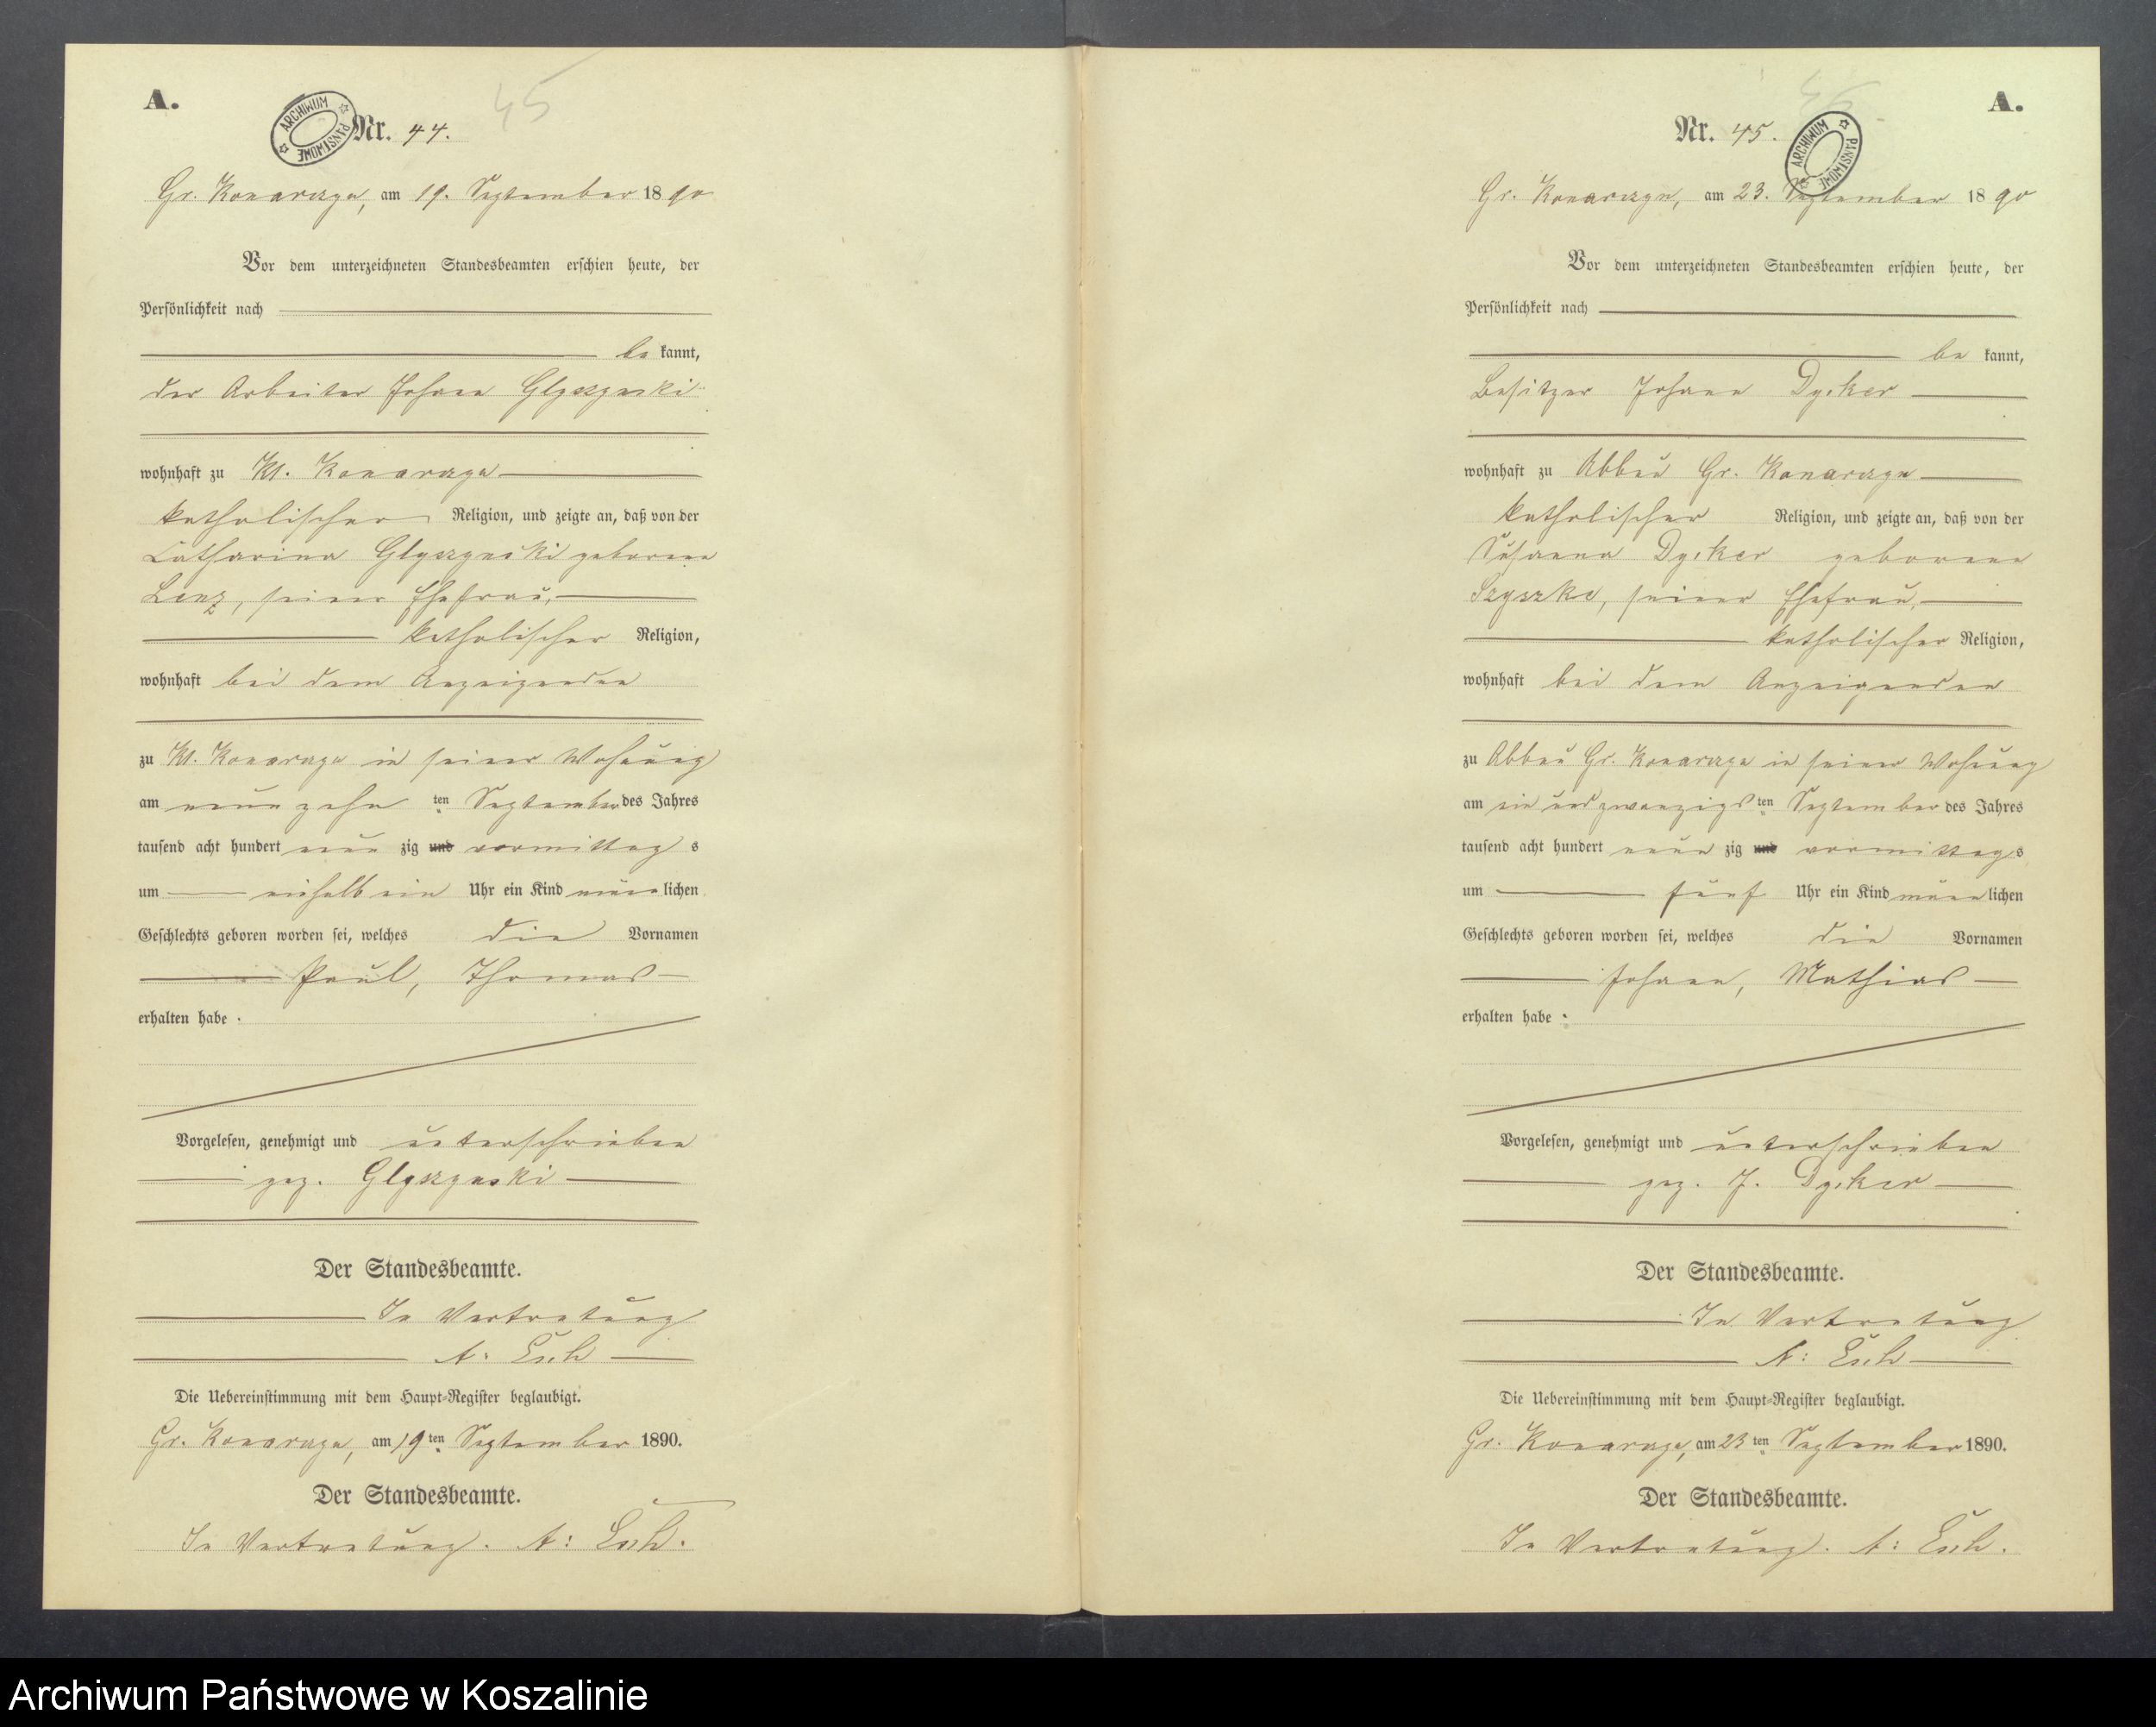 A.
ARCHIWUM PAŃSTWOWE
45
Nr. 44.
Gr. Konarczyn, am 19. September 1890
Vor dem unterzeichneten Standesbeamten erschien heute, der
Persönlichkeit nach
be kannt,
der Arbeiter Johann Glyszynski
wohnhaft zu Kl. Konarczyn
katholischer Religion, und zeigte an, daß von der
Catharina Glyszynski geborene
Lenz, seiner Ehefrau,
katholischer Religion,
wohnhaft bei dem Anzeigenden
zu Kl. Konarczyn in seiner Wohnung
am neunzehn ten September des Jahres
tausend acht hundert neun zig und vormittag s
um einhalb ein Uhr ein Kind männlichen
Geschlechts geboren worden sei, welches die Vornamen
Paul, Thomas
erhalten habe.
Vorgelesen, genehmigt und unterschrieben
gez. Glyszynski
Der Standesbeamte.
In Vertretung
A:
Die Uebereinstimmung mit dem Haupt-Register beglaubigt.
Gr. Konarczyn, am 19 ten September 1890.
Der Standesbeamte.
In Vertretung. A:
A.
ARCHIWUM PAŃSTWOWE
Nr. 45.
Gr. Konarczyn, am 23. September 1890
Vor dem unterzeichneten Standesbeamten erschien heute, der
Persönlichkeit nach
be kannt,
Besitzer Johann Dycker
wohnhaft zu Abbau Gr. Konarczyn
katholischer Religion, und zeigte an, daß von der
Susanna Dycker geborene
Szyszke, seiner Ehefrau,
katholischer Religion,
wohnhaft bei dem Anzeigenden
zu Abbau Gr. Konarczyn in seiner Wohnung
am ein und zwanzigsten September des Jahres
tausend acht hundert neun zig und vormittags
um fünf Uhr ein Kind männlichen
Geschlechts geboren worden sei, welches die Vornamen
Johann, Mathias
erhalten habe.
Vorgelesen, genehmigt und unterschrieben
gez. J. Dycker
Der Standesbeamte.
In Vertretung
A:
Die Uebereinstimmung mit dem Haupt-Register beglaubigt.
Gr. Konarczyn, am 23 ten September 1890.
Der Standesbeamte.
In Vertretung. A:
Archiwum Państwowe w Koszalinie